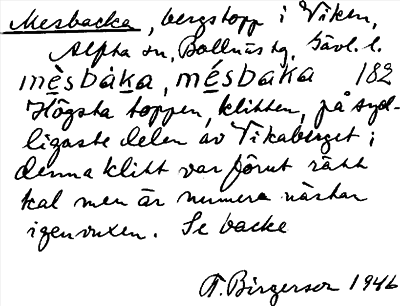 Mesbacka, bergstopp i Viken,
Alfta sn, Bollnäs tg, Gävl. l.
mèsbáka, mésbáka 182
Högsta toppen, klitten, på syd-
ligaste delen av Vikaberget;
denna klitt var förut rätt
kal men är numera nästan
igenvuxen. Se backe
F. Birgerson 1946